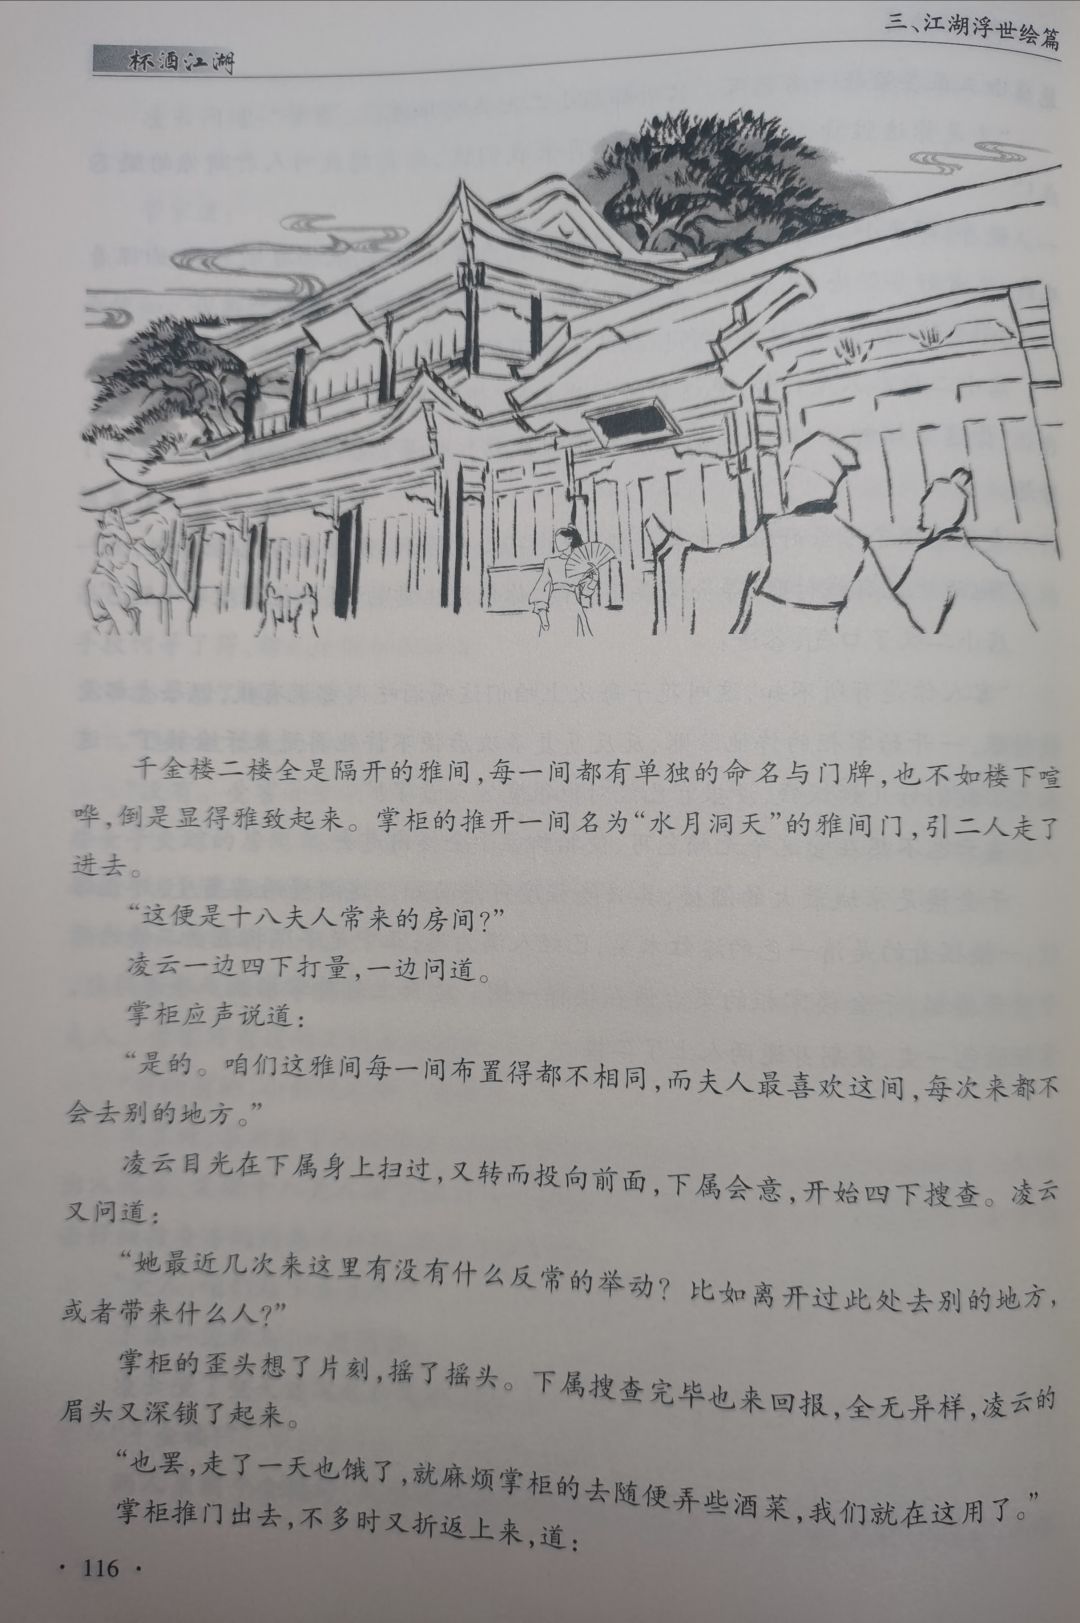 三、江湖浮世绘篇
杯酒江湖
千金楼二楼全是隔开的雅间,每一间都有单独的命名与门牌,也不如楼下喧
哗,倒是显得雅致起来。掌柜的推开一间名为“水月洞天”的雅间门,引二人走了
进去。
“这便是十八夫人常来的房间?”
凌云一边四下打量,一边问道。
掌柜应声说道:
“是的。咱们这雅间每一间布置得都不相同,而夫人最喜欢这间,每次来都不
会去别的地方。”
凌云目光在下属身上扫过,又转而投向前面,下属会意,开始四下搜查。凌云
又问道:
“她最近几次来这里有没有什么反常的举动?比如离开过此处去别的地方,
或者带来什么人?”
掌柜的歪头想了片刻,摇了摇头。下属搜查完毕也来回报,全无异样,凌云的
眉头又深锁了起来。
“也罢,走了一天也饿了,就麻烦掌柜的去随便弄些酒菜,我们就在这用了。”
掌柜推门出去,不多时又折返上来,道:
· 116 ·